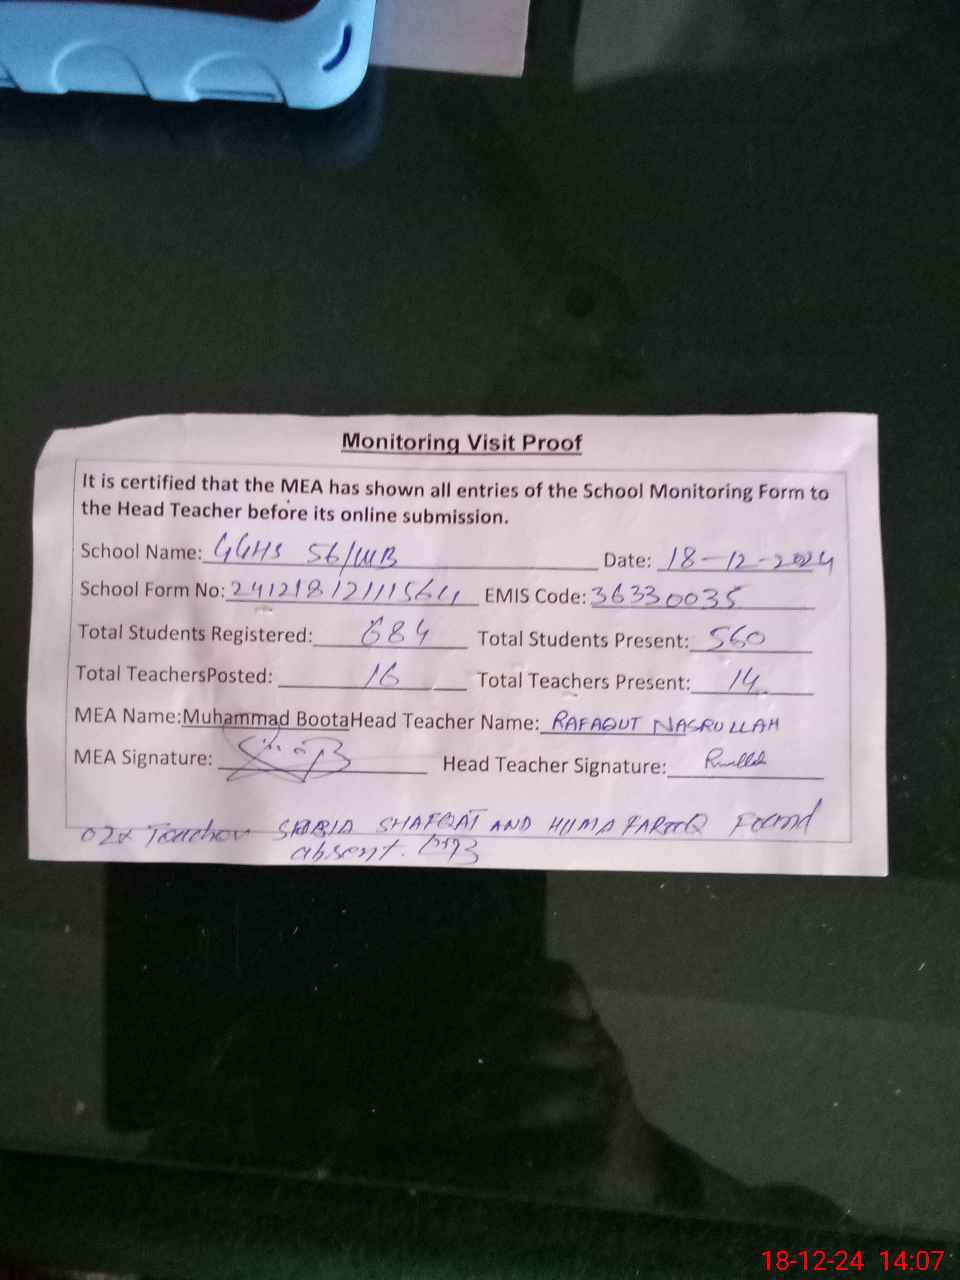 Monitoring Visit Proof
It is certified that the MEA has shown all entries of the School Monitoring Form to
the Head Teacher before its online submission.
School Name: GGHS 56/WB Date: 18-12-2024
School Form No: 24121812111564 EMIS Code: 36330035
Total Students Registered: 684 Total Students Present: 560
Total TeachersPosted: 16 Total Teachers Present: 14
MEA Name:Muhammad BootaHead Teacher Name: RAFAQUT NASRULLAH
MEA Signature: Head Teacher Signature:
02x Teacher SHAFQAT AND HUMA FAROOQ Found
absent.
18-12-24 14:07